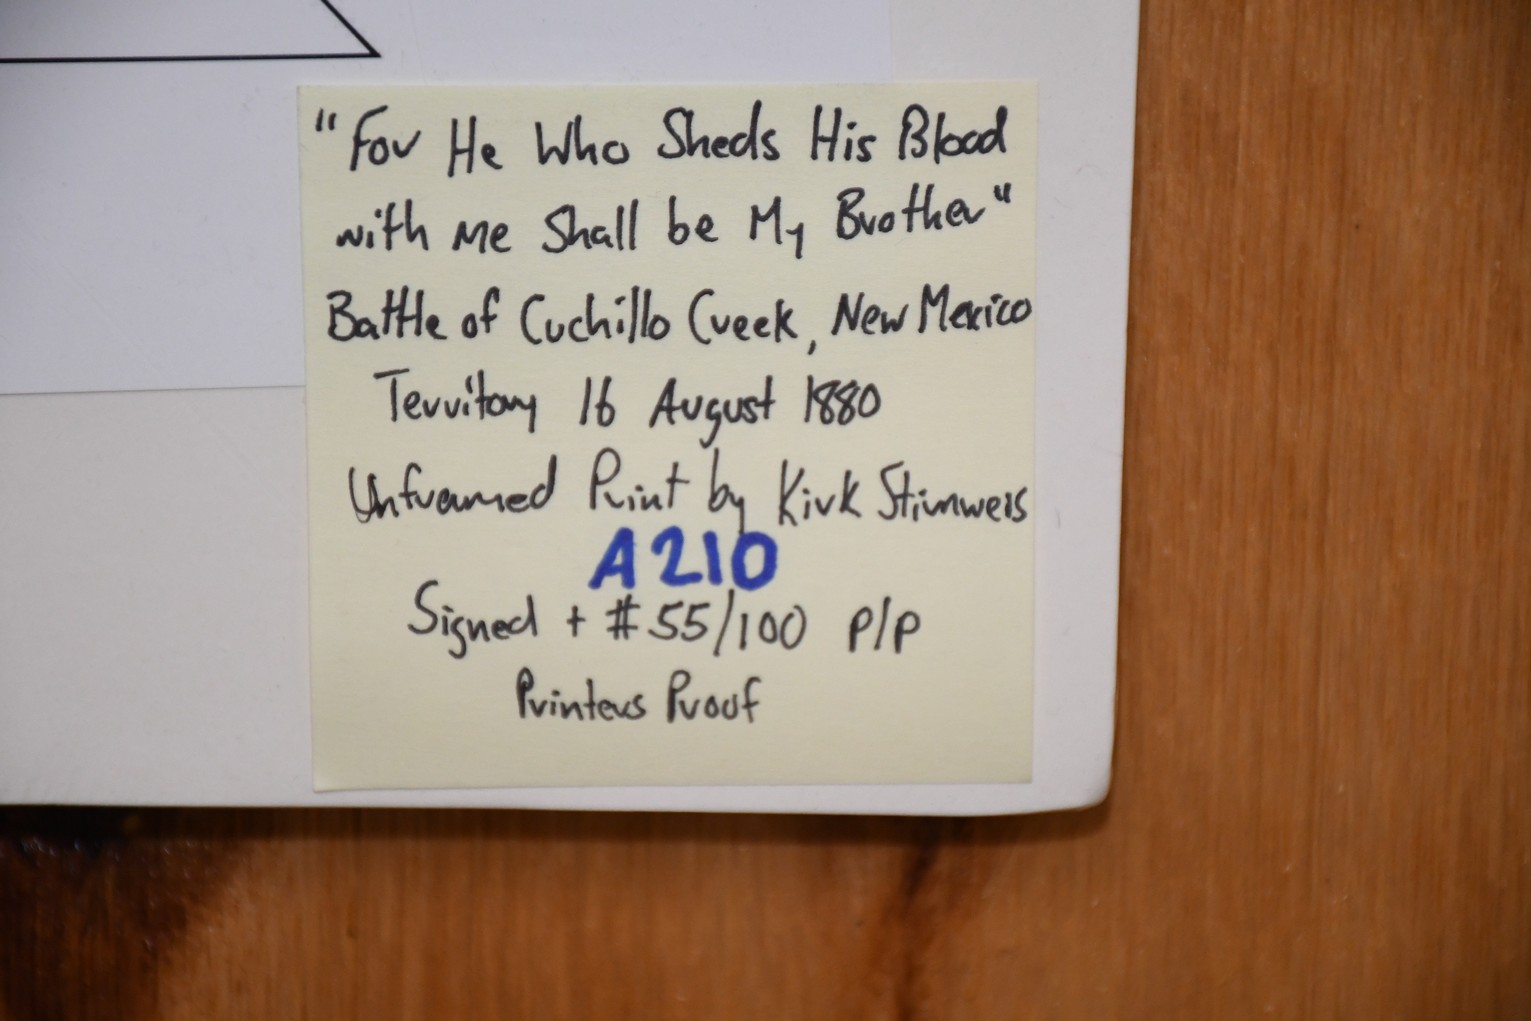 "For He Who Sheds His Blood
with me Shall be My Brother"
Battle of Cuchillo Creek, New Mexico
Territory 16 August 1880
Unframed Print by Kirk Stirnweis
A210
Signed + #55/100 P/P
Printers Proof